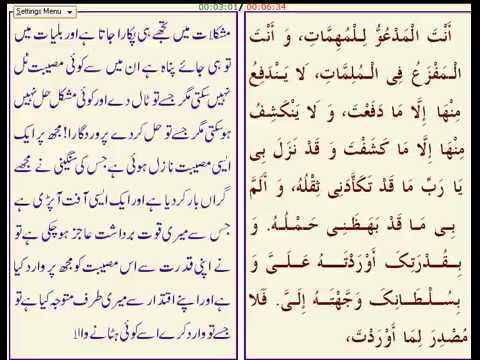 Settings Menu
00:03:01 / 00:06:34
أَنْتَ الْمَدْعُوُّ لِلْمُهِمَّاتِ، وَ أَنْتَ
الْمَفْزَعُ فِي الْمُلِمَّاتِ، لَا يَنْدَفِعُ
مِنْهَا إِلَّا مَا دَفَعْتَ، وَ لَا يَنْكَشِفُ
مِنْهَا إِلَّا مَا كَشَفْتَ وَ قَدْ نَزَلَ بِي
يَا رَبِّ مَا قَدْ تَكَأَّدَنِي ثِقْلُهُ، وَ أَلَمَّ
بِي مَا قَدْ بَهَظَنِي حَمْلُهُ. وَ
بِقُدْرَتِكَ أَوْرَدْتَهُ عَلَيَّ وَ
بِسُلْطَانِكَ وَجَّهْتَهُ إِلَيَّ. فَلَا
مُصْدِرَ لِمَا أَوْرَدْتَ،
مشکلات میں تجھے ہی پکارا جاتا ہے اور بلیات میں
تو ہی جائے پناہ ہے ان میں سے کوئی مصیبت ٹل
نہیں سکتی مگر جسے تو ٹال دے اور کوئی مشکل حل نہیں
ہو سکتی مگر جسے تو حل کر دے پروردگارا! مجھ پر ایک
ایسی مصیبت نازل ہوئی ہے جس کی سنگینی نے مجھے
گراں بار کر دیا ہے اور ایک ایسی آفت آ پڑی ہے
جس سے میری قوت برداشت عاجز ہو چکی ہے تو
نے اپنی قدرت سے اس مصیبت کو مجھ پر وارد کیا
ہے اور اپنے اقتدار سے میری طرف متوجہ کیا ہے تو
جسے تو وارد کرے اسے کوئی ہٹانے والا